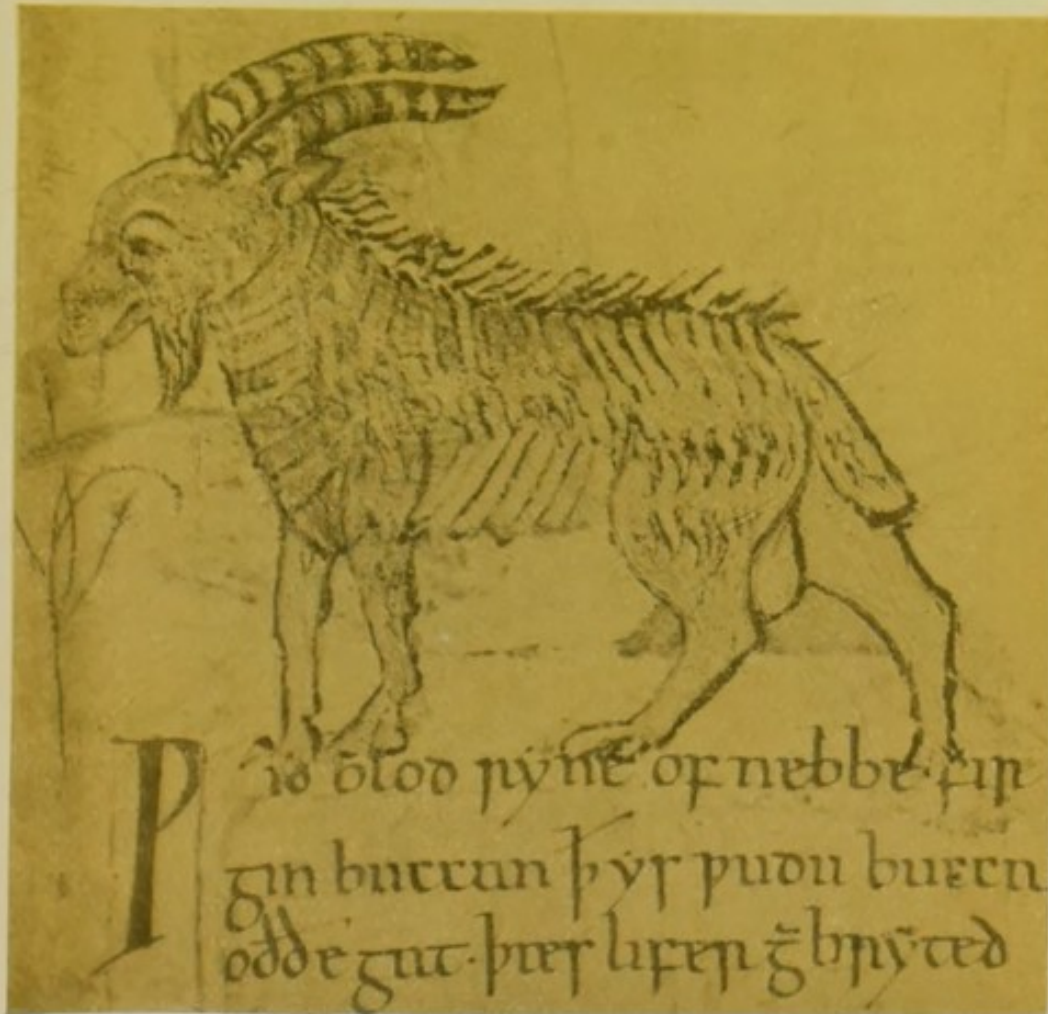 Ƿið blod ryne of nebbe. fir
gin buccan ꝥ ys ƿudu bucca
oððe gat. þæs lifer g̅bryted